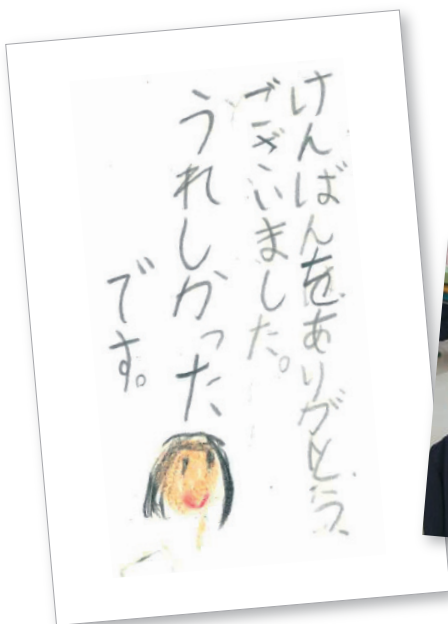 けんばんをありがとう
ございました。
うれしかった
です。